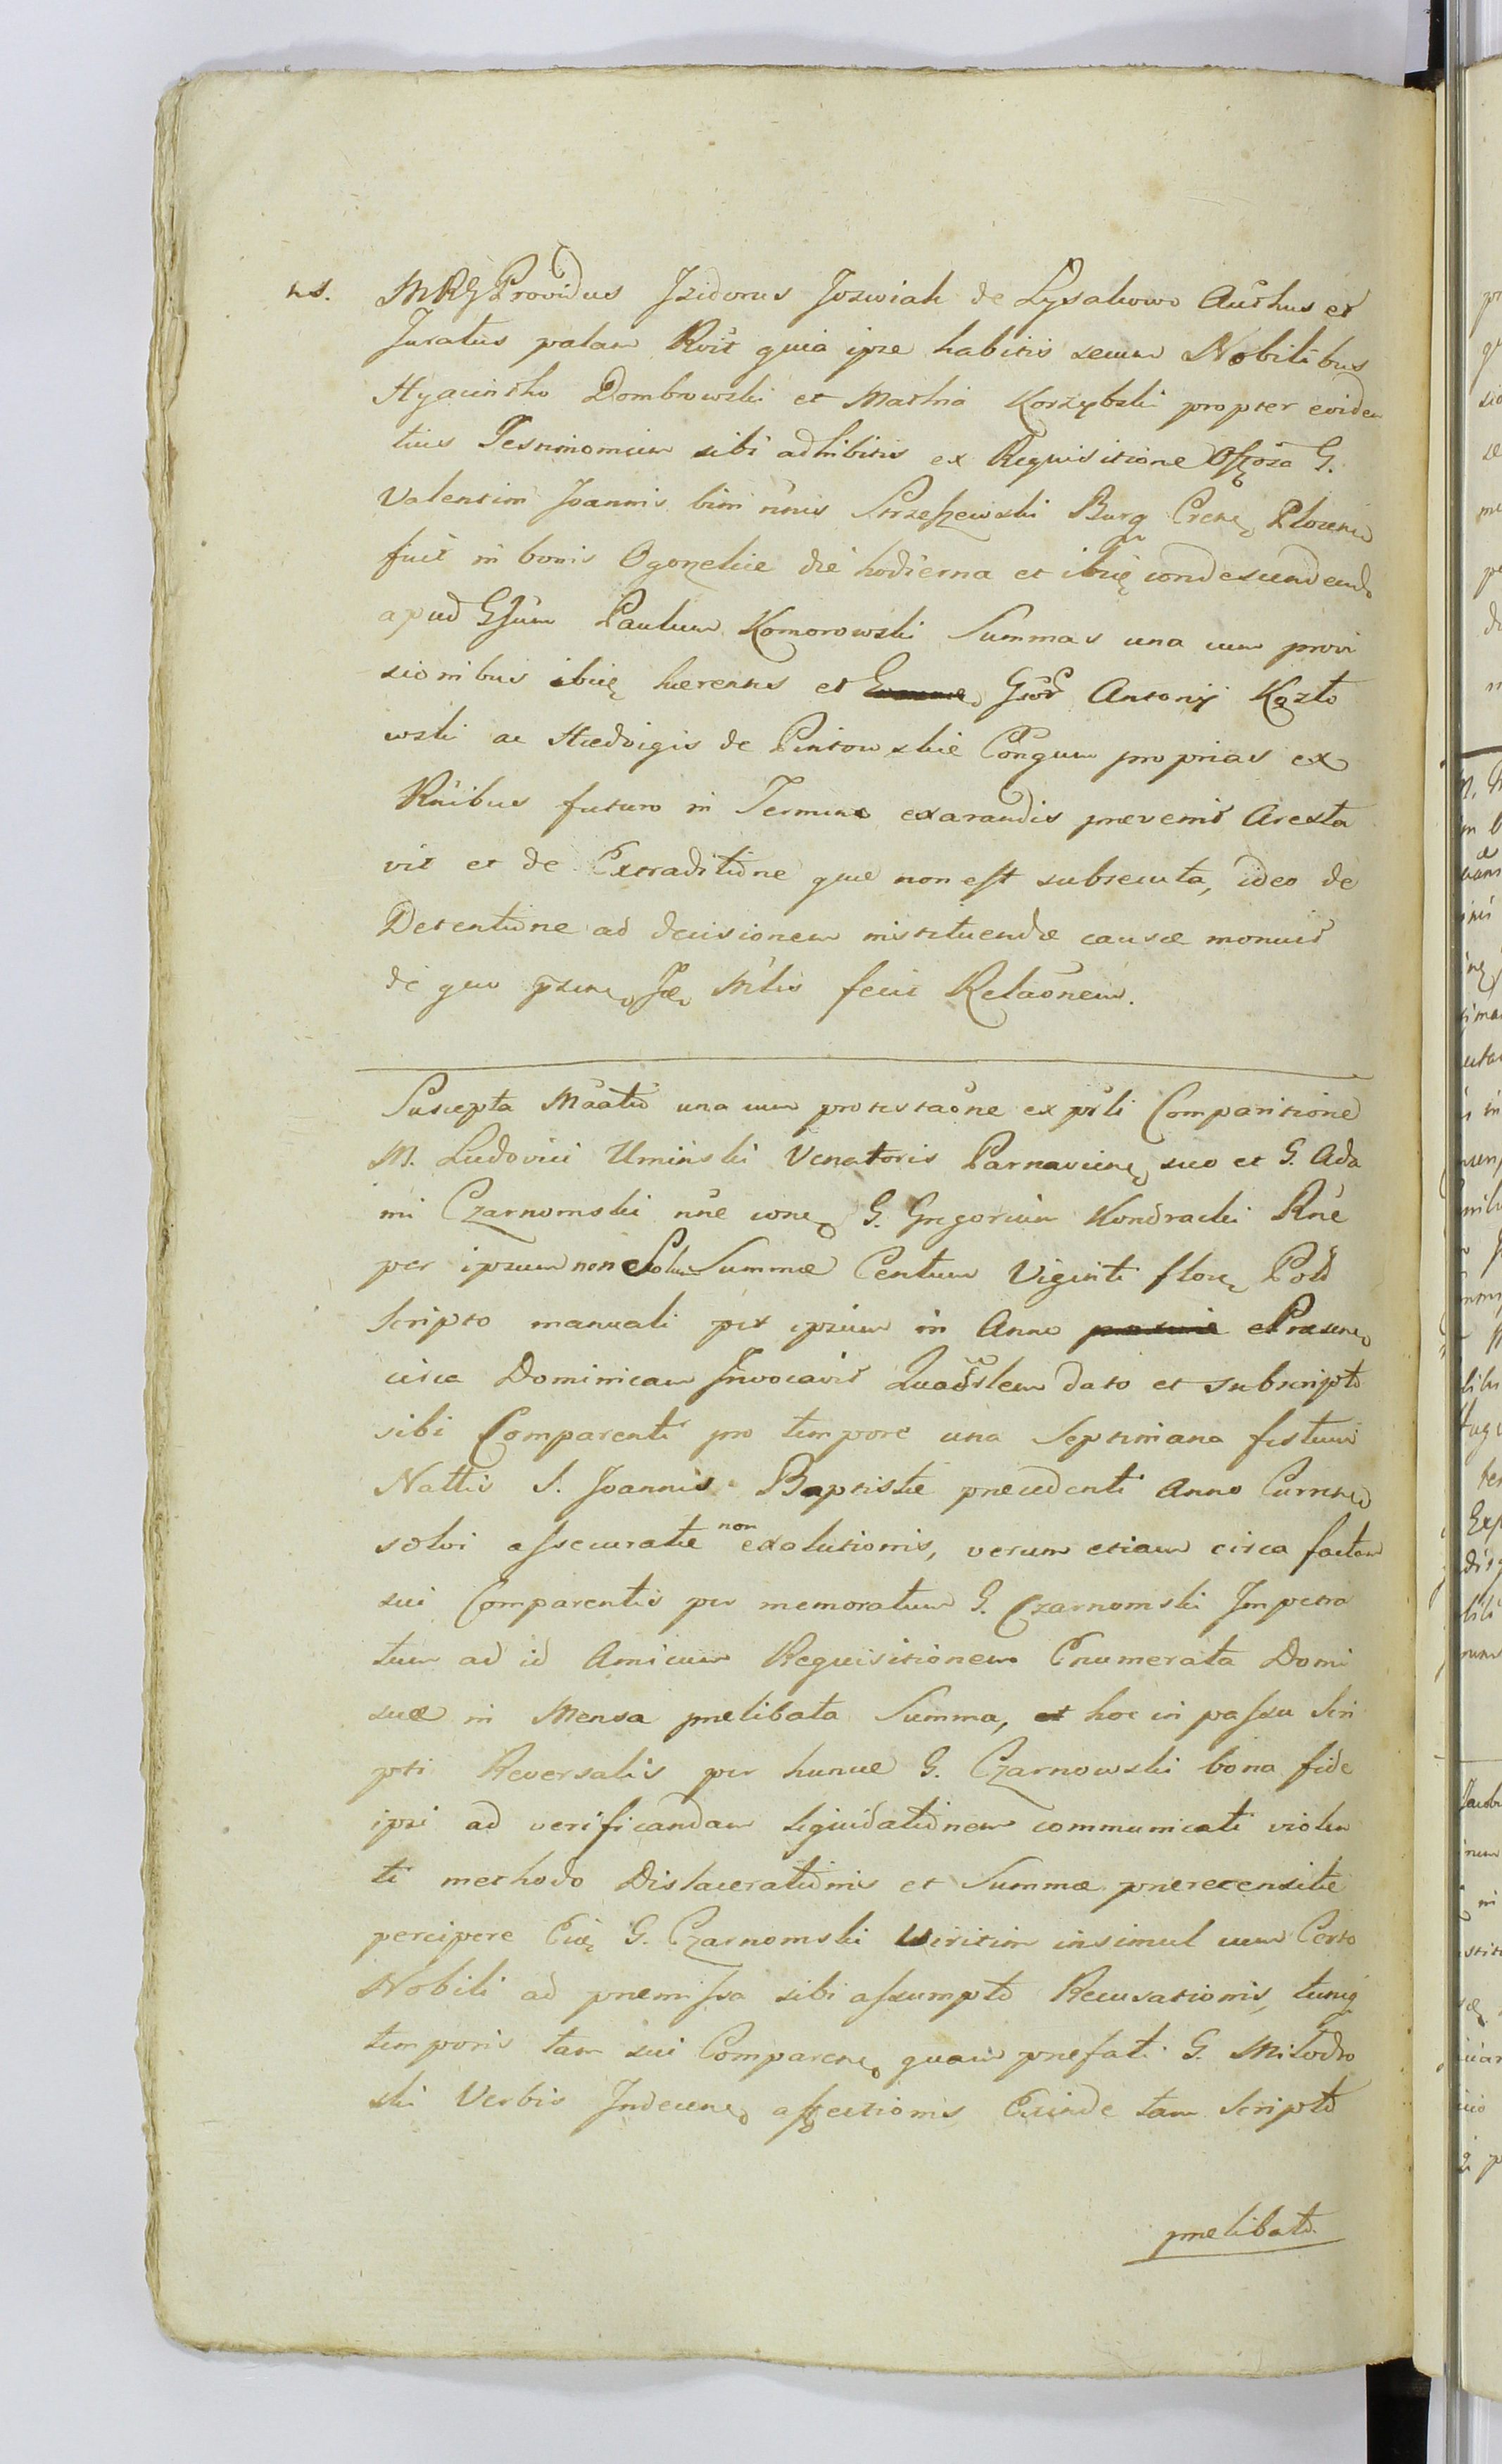 ns. MRG Providus Izidorus Jozwiak de Lysakowo Authus et
Juratus palam Rvit quia ipse habitis secum Nobilibus
Hyacintho Dombrowski et Mathia Korzybski propter eviden
tius Testimonium sibi adhibitis ex Requisitione G.
Valentini Joannis bini nnis Strzeszewski Burg Crens Plocens
fuit in bonis Ogonelice die hodierna et ibiq condescendendo
apud Gsum Paulum Komorowski Summas una cum provi
sionibus ibiq haerentes et Gsor Antonij Kozlo
wski ac Haedvigis de Pintowskie Congum proprias ex
Rnibus futuro in Termino exarandis praevenit Aresta
vit et de Extraditione quae non est subsecuta, ideo de
Detentione ad decisionem instituendae causae monuit
de quo Mlis fecit Relaonem.
Suscepta Maatio una cum protestaone ex prli Comparitione
M. Ludovici Uminski Venatoris Parnaviens suo et G. Ada
mi Czarnomski nne cone G. Gregorium Kondracki Rne
per ipsum non Summae Centum Viginti flor Pold
Scripto manuali per ipsum in Anno Praesene
circa Dominicam Invocavit Quadslem dato et subscripto
sibi Comparenti pro tempore una Septimana festum
Nattis S. Joannis Baptistae praecedenti Anno Currene
solvi assecuratae non exolutionis, verum etiam circa factam
sui Comparentis per memoratum G. Czarnomski Impetra
tum ad id Amicum Requisitionem Enumerata Domi
suae in Mensa praelibata Summa, et hoc in passu Scri
pti Reversalis per hunce G. Czarnowski bona fide
ipsi ad verificandam liquidationem communicati violen
ti methodo Dislacerationis et Summae praerecensitae
percipere Eiq G. Czarnomski viritim insimul cum Certo
Nobili ad praemissa sibi assumpto Recusationis, tunq
temporis tam sui Comparene quam praefati G. Milodro
ski Verbis Indecene affectionis Exinde tam Scripto
praelibato